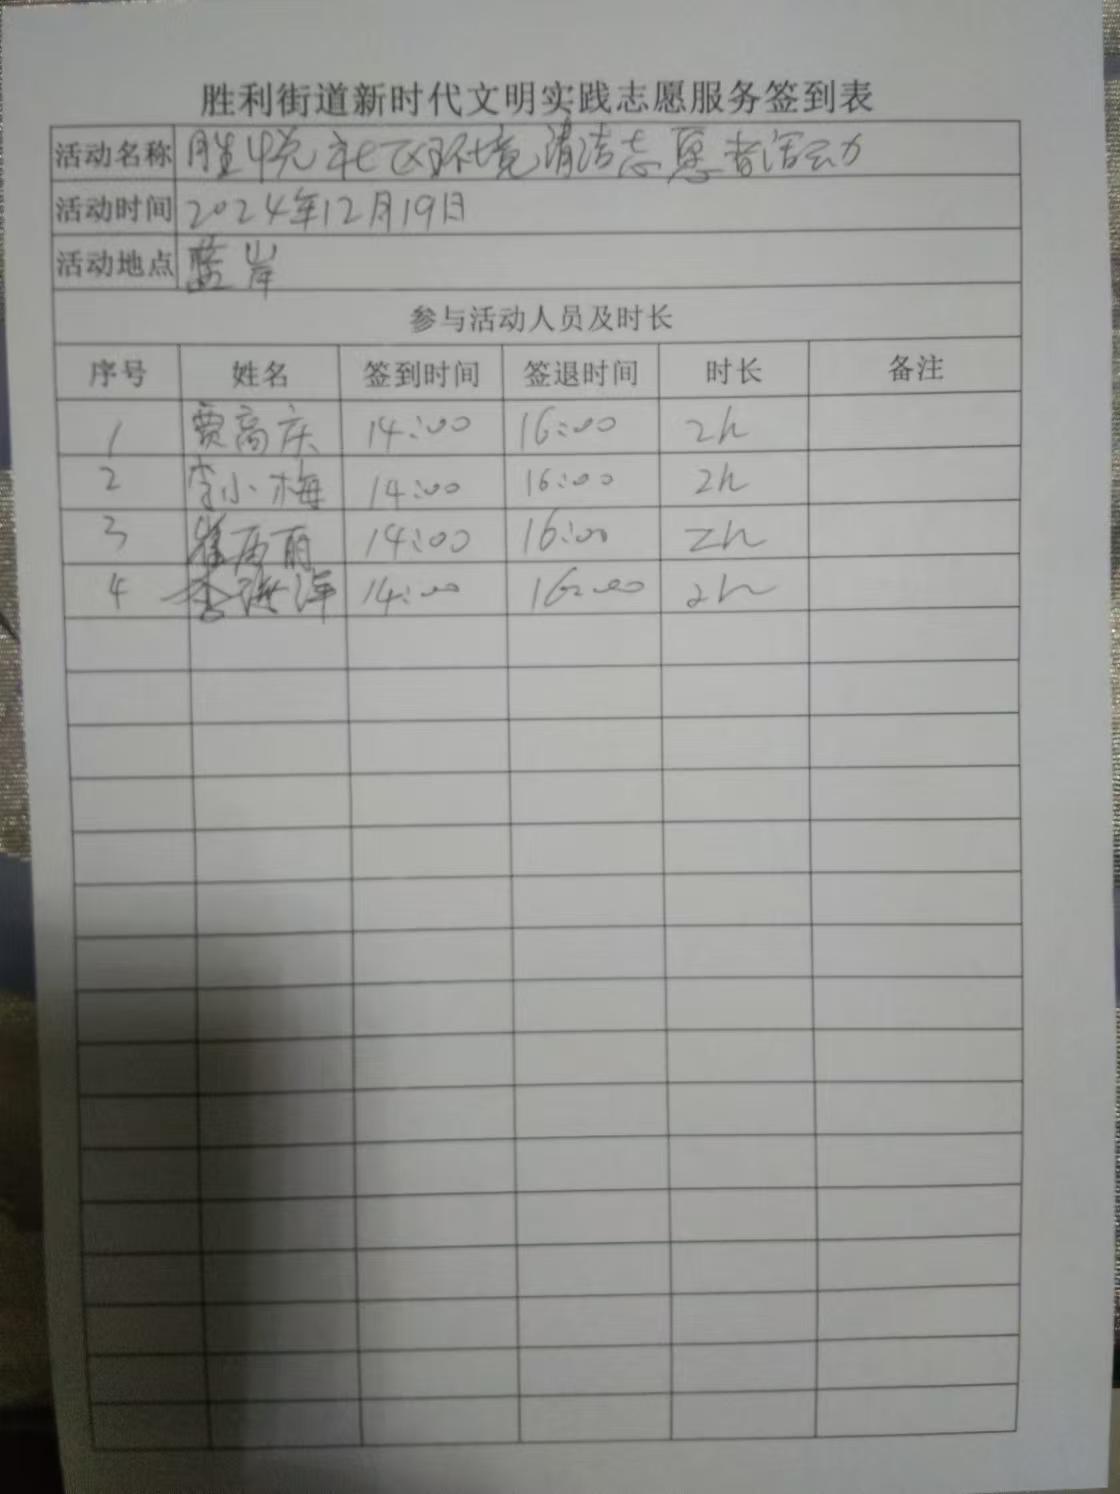 胜利街道新时代文明实践志愿服务签到表
活动名称 胜悦社区环境清洁志愿者活动
活动时间 2024年12月19日
活动地点 蓝岸
参与活动人员及时长
序号 姓名 签到时间 签退时间 时长 备注
1 贾高庆 14:00 16:00 2h
2 李小梅 14:00 16:00 2h
3 崔丽 14:00 16:00 2h
4 李洋 14:00 16:00 2h